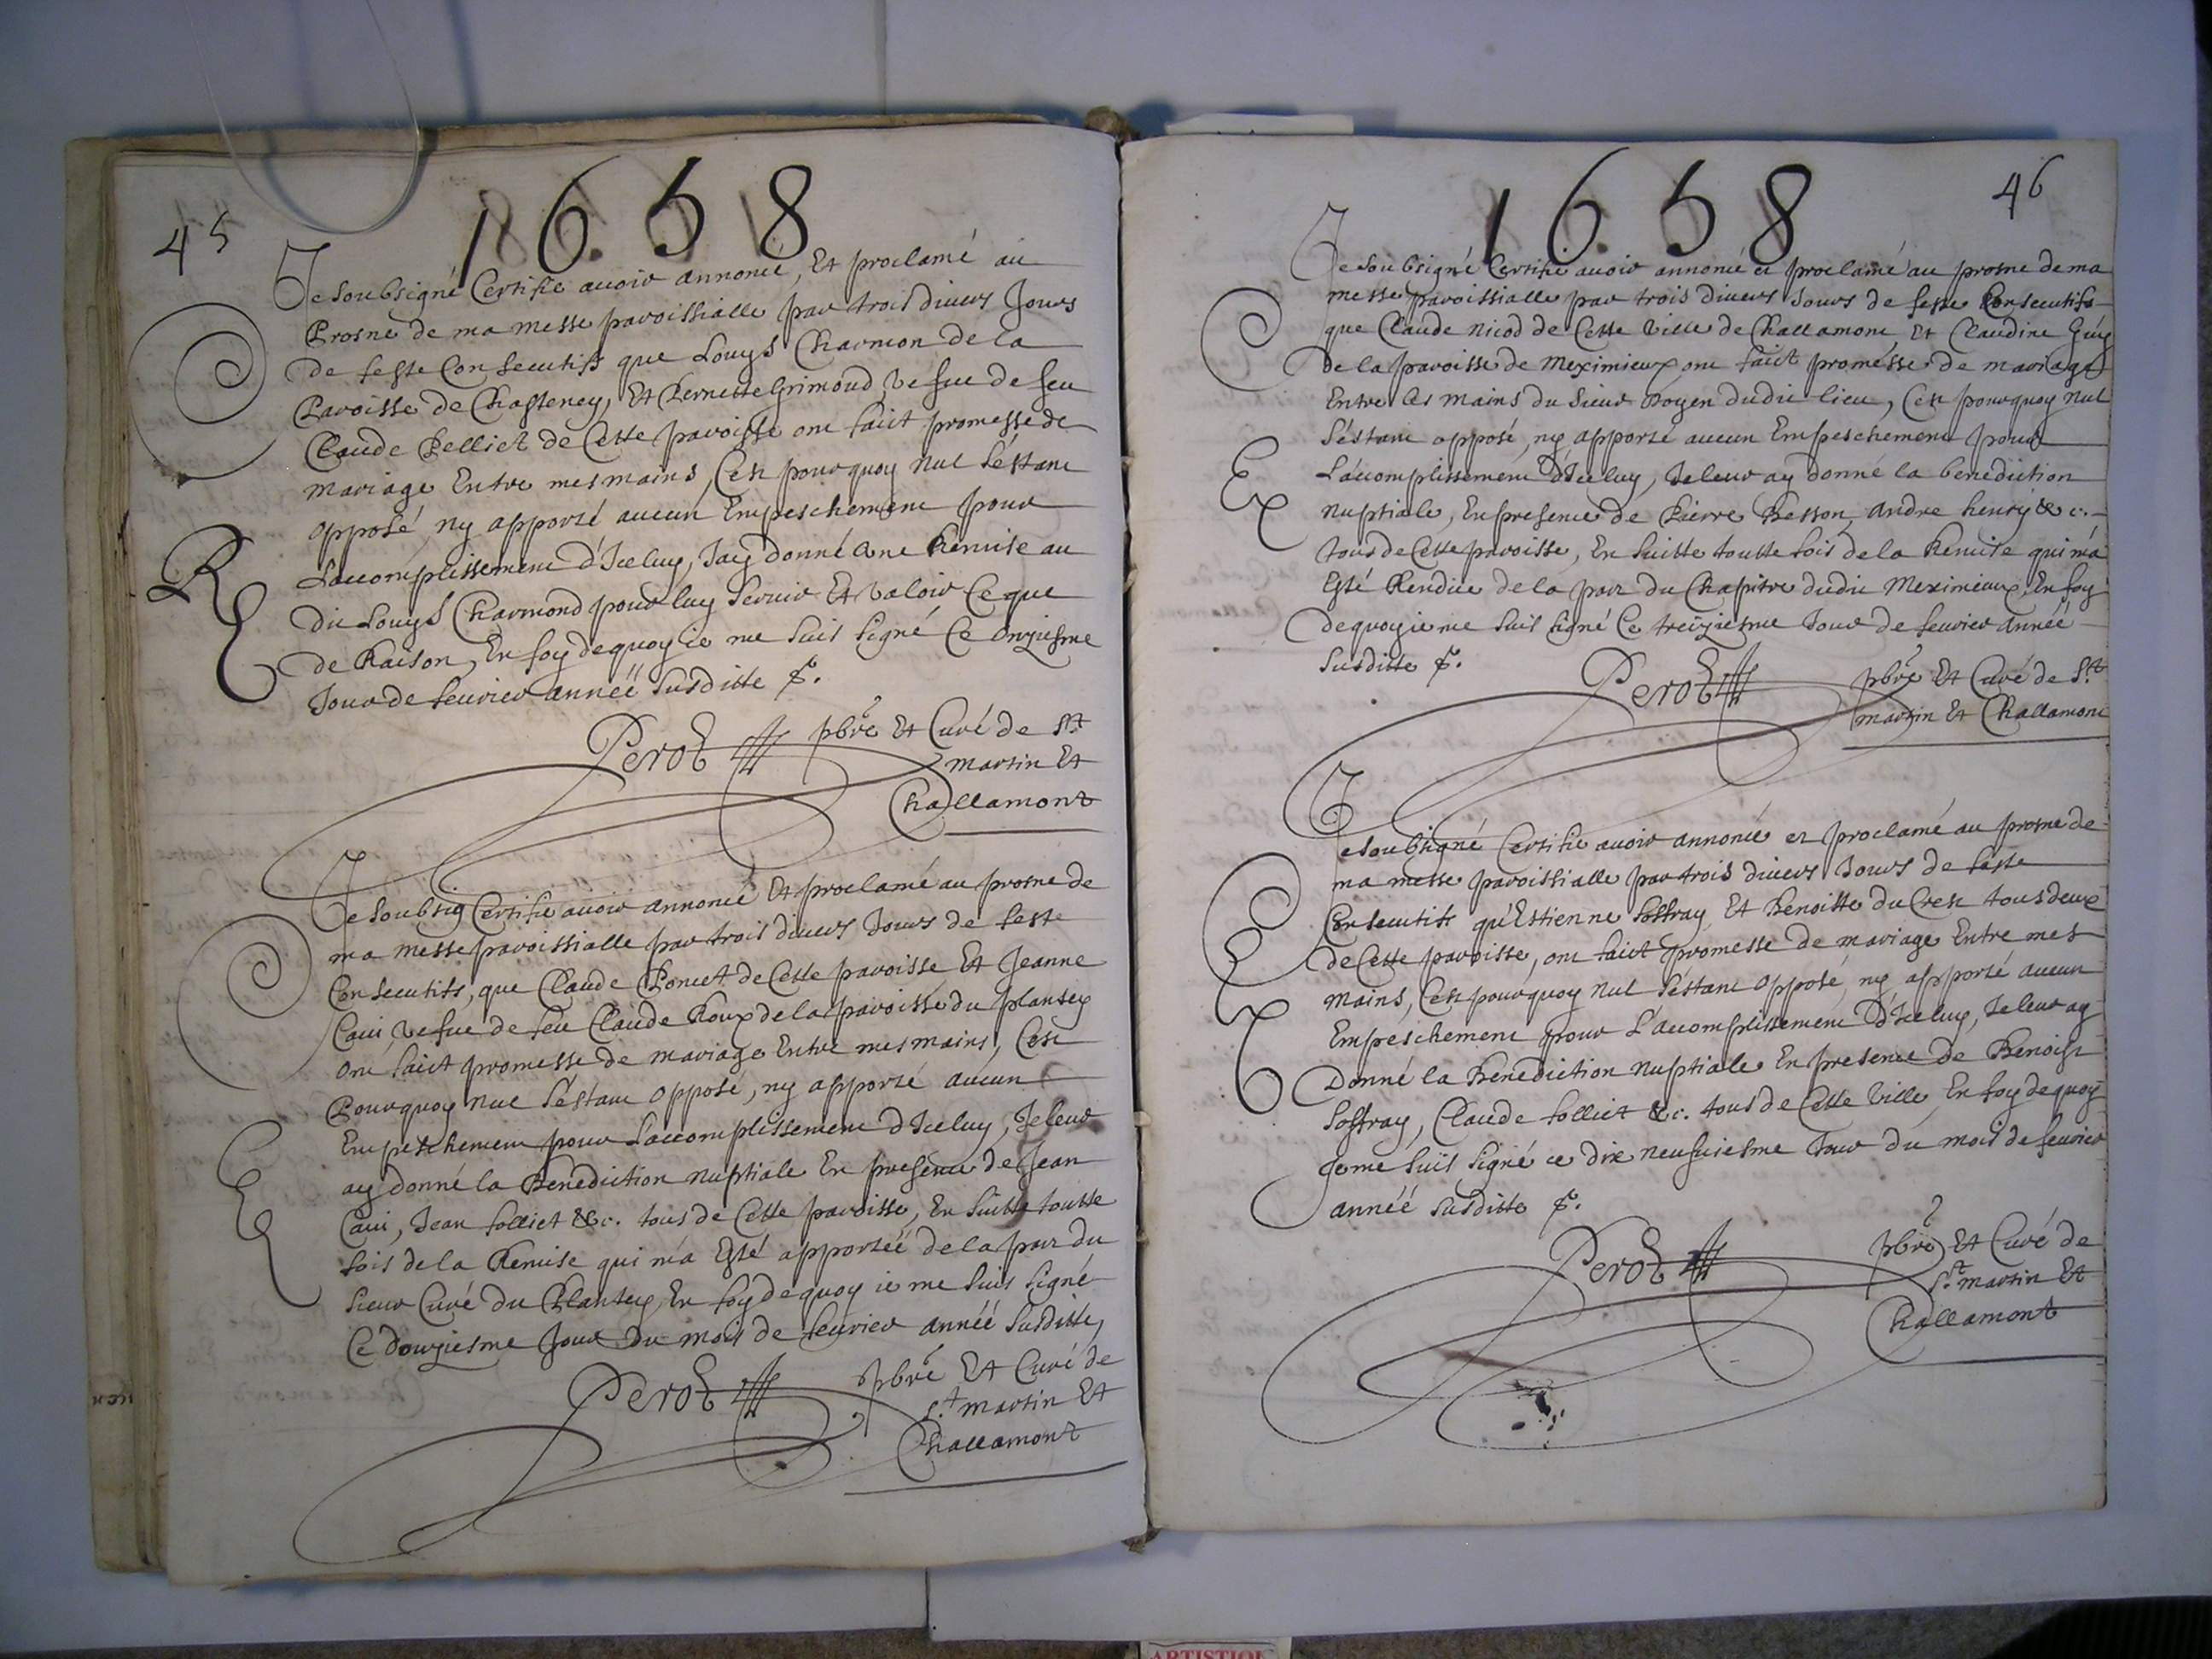 45
1658
Je soubsigné Certifie avoir annoncé, Et proclamé au
Prosne de ma messe paroissialle par trois divers Jours
de feste Consecutifs que Louys Charmon de la
Paroisse de Chasteney, Et Pernette Grimoud vefue de feu
Claude Pelliet de Cette paroisse ont faict promesse de
mariage Entre mes mains, Cest pourquoy nul s'éstant
opposé, ny apporté aucun Empeschement pour
L'accomplissement d'Iceluy, J'ay donné une Remise au
dit Louys Charmond pour luy servir Et valoir Ce que
de Raison, En foy de quoy ie me suis signé Ce onziesme
Jour de feuvrier année susditte
Perot pbre Et Curé de St
martin Et
Challamont
Je soubsig Certifie avoir annoncé Et proclamé au prosne de
ma messe paroissialle par trois divers Jours de feste
Consecutifs, que Claude Poncet de Cette paroisse Et Jeanne
Caui vefue de feu Claude Roux de la paroisse du plantey
ont faict promesse de mariage Entre mes mains, Cest
Pourquoy nul s'éstant opposé, ny apporté aucun
Empeschement pour L'accomplissement d'Iceluy, Je leur
ay donné la Benediction nuptiale En presence de Jean
Caui, Jean folliet &c. tous de Cette paroisse, En suitte toutte
fois de la Remise qui m'a Esté apportéé de la part du
sieur Curé du Plantey, En foy de quoy ie me suis signé
Ce douziesme Jour du mois de feuvrier annéé susditte,
Perot pbre Et Curé de
St martin Et
Challamont
46
1658
Je soubsigné Certifie avoir annoncé et proclamé au prosne de ma
messe paroissialle par trois divers Jours de feste Consecutifs
que Claude Nicod de Cette ville de Challamont Et Claudine Guy
de la paroisse de Meximieux ont faict promesse de mariage
Entre les mains du sieur Doyen dudit lieu, Cest pourquoy nul
s'éstant opposé, ny apporté aucun Empeschement pour
L'accomplissement d'Iceluy, Je leur ay donné la benediction
nuptiale, En presence de Pierre Besson, Andre henry &c.
tous de Cette paroisse, En suitte toutte fois de la Remise qui m'a
Esté Rendue de la part du Chapitre dudit Meximieux, En foy
de quoy ie me suis signé Ce treiziesme Jour de feuvrier annéé
susditte
Perot pbre Et Curé de St
martin Et Challamont
Je soubsigné Certifie avoir annoncé et proclamé au prosne de
ma messe paroissialle par trois divers Jours de feste
Consecutifs qu'Estienne Soffray Et Benoiste du Crest tous deux
de Cette paroisse, ont faict promesse de mariage Entre mes
mains, Cest pourquoy nul s'éstant opposé, ny apporté aucun
Empeschement pour L'accomplissement d'Iceluy, Je leur ay
Donné la Benediction nuptiale En presence de Benoist
Soffray, Claude folliet &c. tous de Cette ville, En foy de quoy
Je me suis signé ce dix neufuiesme Jour du mois de feuvrier
annéé susditte
Perot pbre Et Curé de
St martin Et
Challamont